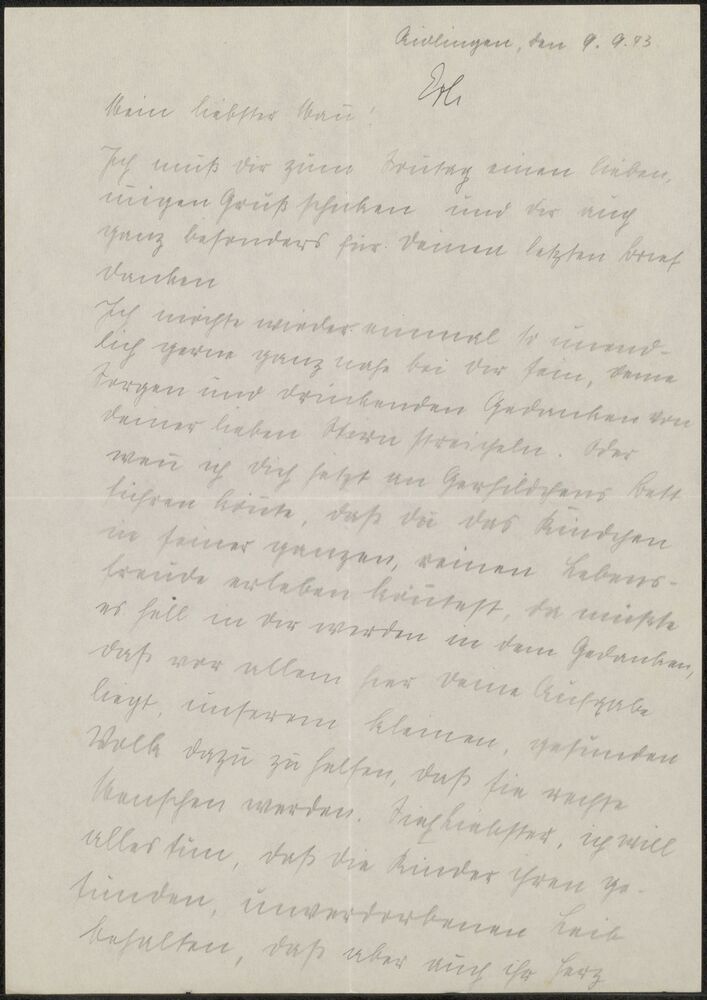 Aidlingen, den 9. 9. 43.
Erh.
Mein liebster Mann!
Ich muß dir zum Sonntag einen lieben,
innigen Gruß schicken und dir auch
ganz besonders für Deinen letzten Brief
danken
Ich möchte wieder einmal so unend-
lich gerne ganz nahe bei dir sein, deine
Sorgen und drückenden Gedanken von
deiner lieben Stirn streicheln. Oder
wenn ich dich jetzt an Gerhildchens Bett
führen könnte, daß du das Kindchen
in seiner ganzen, reinen Lebens-
freude erleben könntest, da müßte
es hell in dir werden in dem Gedanken,
daß vor allem hier deine Aufgabe
liegt, unserem kleinen, gesunden
Volk dazu zu helfen, daß sie rechte
Menschen werden. Sieh Liebster, ich will
alles tun, daß die Kinder ihren ge-
sunden, unverdorbenen Leib
behalten, daß aber auch ihr Herz